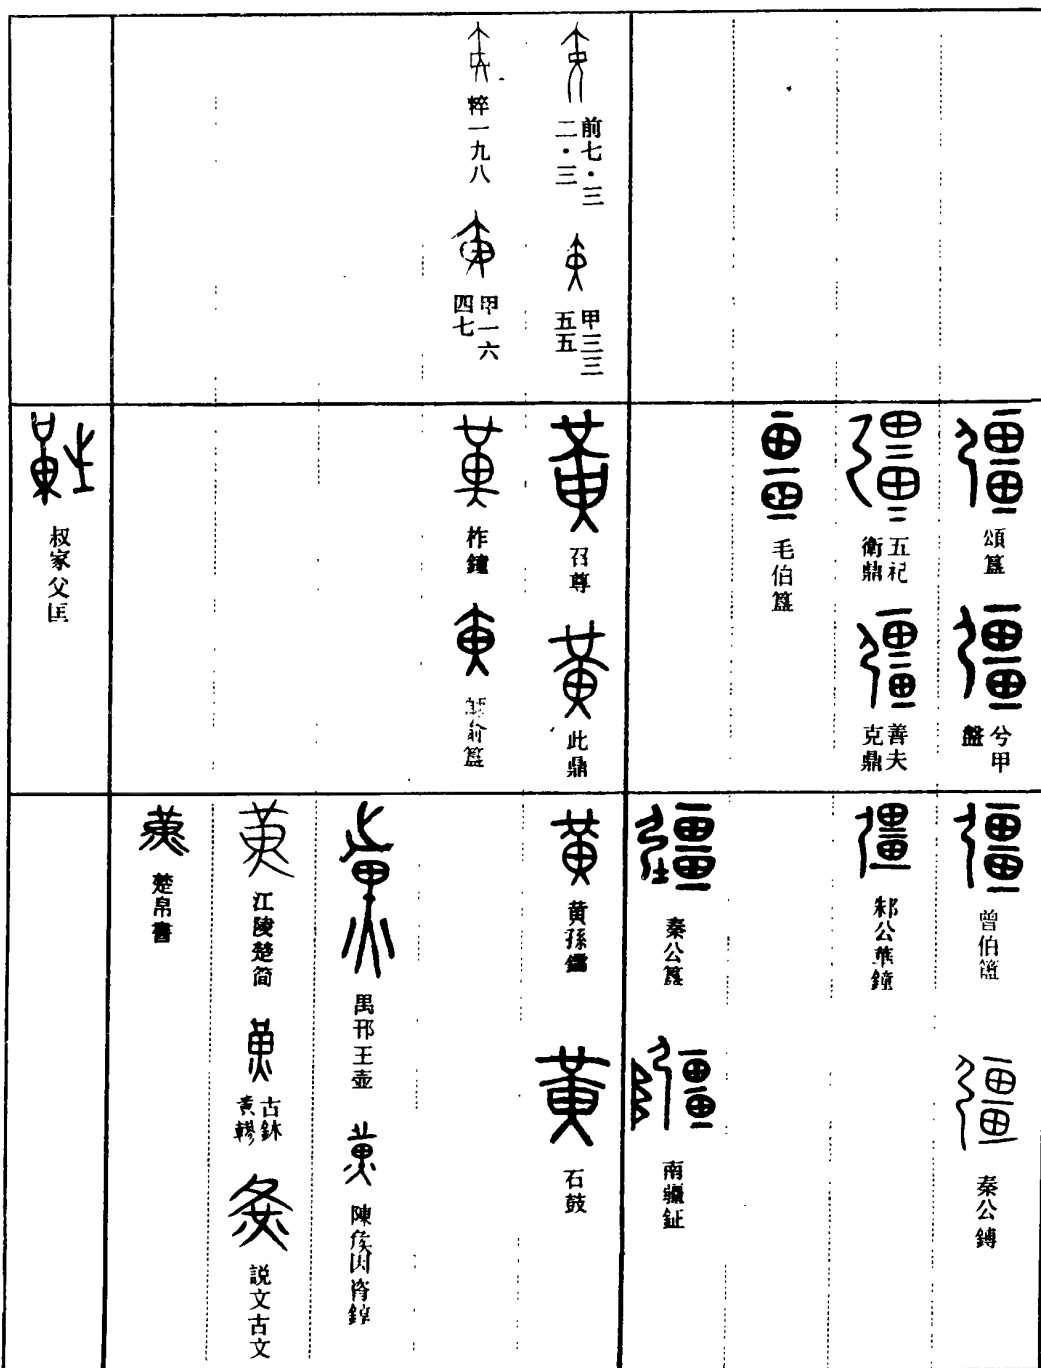 前七・三
二・三
甲三三
五五
粹一九八
甲一六
四七
頌簋
兮甲
盤
五祀
衛鼎
善夫
克鼎
毛伯簋
召尊
此鼎
柞鐘
師俞簋
叔家父匡
曾伯簠
秦公鎛
邾公華鐘
秦公簋
南疆鉦
黃孫鐳
石鼓
禺邗王壺
陳侯因𦣞錞
江陵楚简
古鉢
黃轇
説文古文
楚帛書